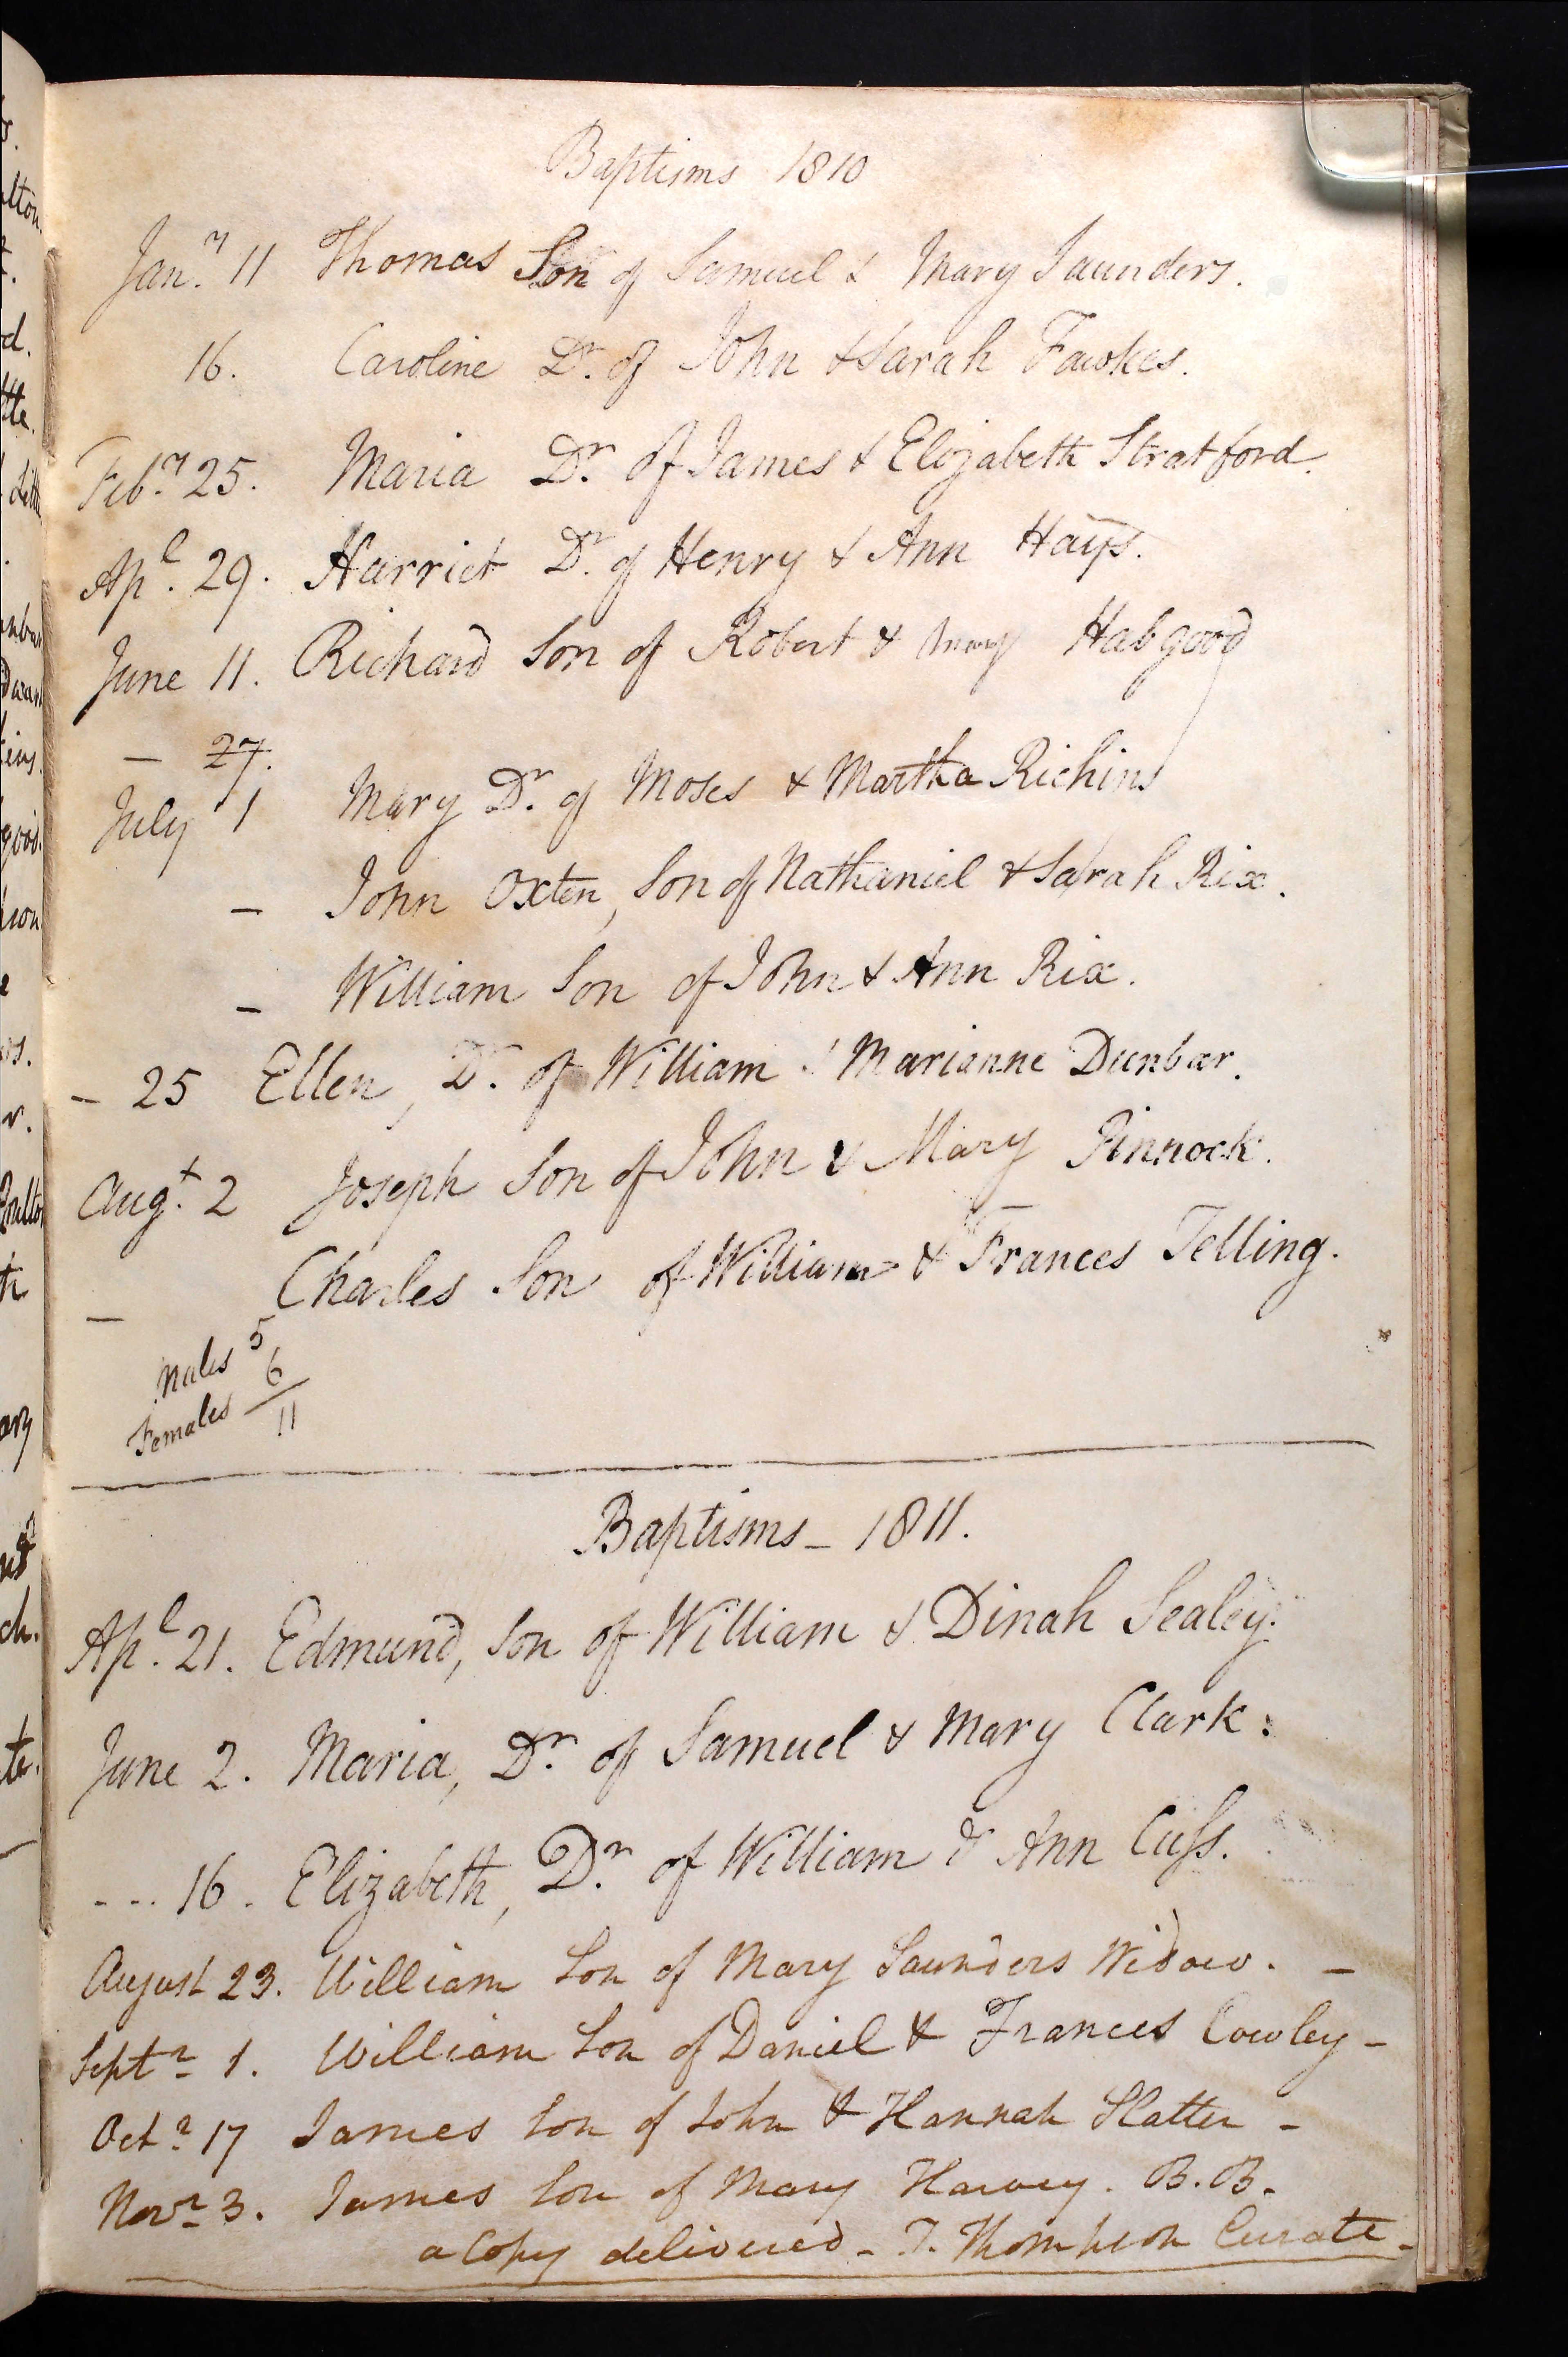 Baptisms 1810
Jan.y 11 Thomas Son of Samuel & Mary Saunders.
16. Caroline Dr. of John & Sarah Fawkes.
Feb.y 25. Maria Dr. of James & Elizabeth Stratford.
Ap.l 29. Harriet Dr. of Henry & Ann Hays.
June 11. Richard Son of Robert & Mary Habgood
— 27.
July 1 Mary Dr. of Moses & Martha Richins
— John Oxten, Son of Nathaniel & Sarah Rix.
— William Son of John & Ann Rix.
— 25 Ellen, Dr. of William & Marianne Dunbar.
Aug.t 2 Joseph Son of John & Mary Pinnock.
— Charles Son of William & Frances Telling.
Males 5
Females 6
11
Baptisms - 1811.
Ap.l 21. Edmund, Son of William & Dinah Sealey.
June 2. Maria, Dr. of Samuel & Mary Clark:
--- 16. Elizabeth, Dr. of William & Ann Cuſs.
August 23. William Son of Mary Saunders Widow. —
Septr 1. William Son of Daniel & Frances Cowley -
Octr 17 James Son of John & Hannah Slatter -
Novr 3. James Son of Mary Harvey. B.B.
a Copy delivered - T. Thompson Curate -